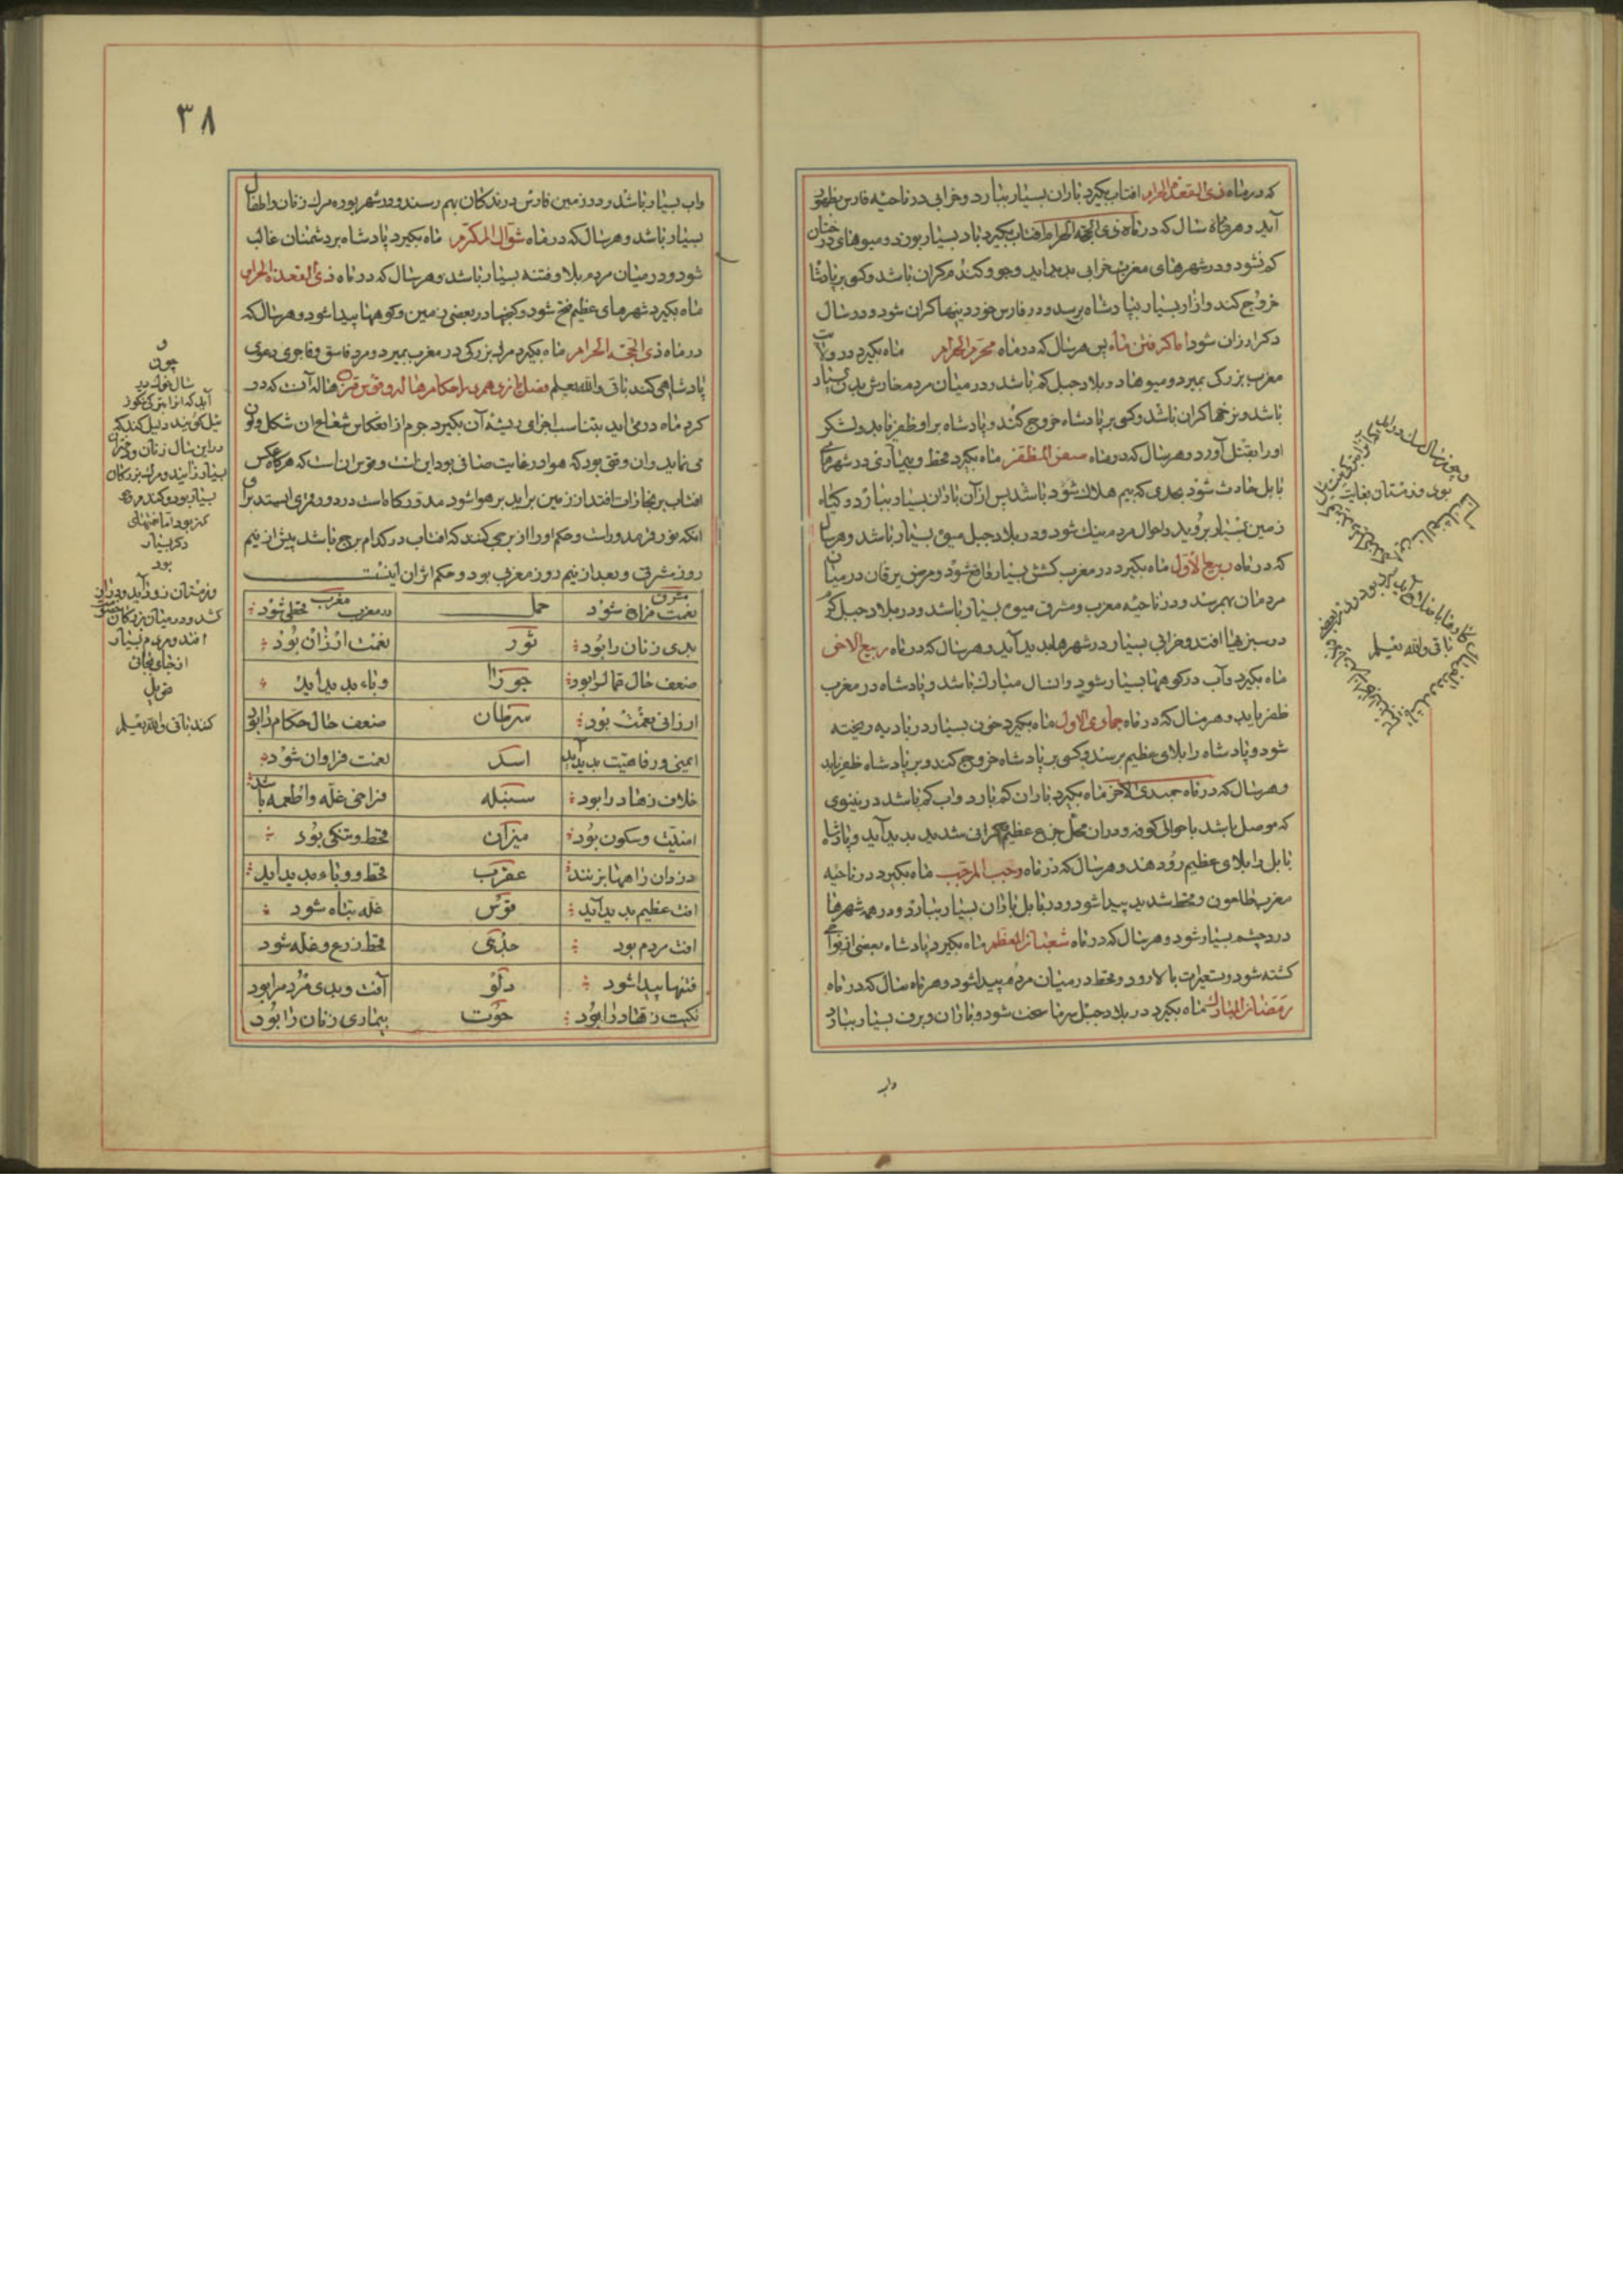 که در ماه ذی القعدة الحرام افتاب بکیرد باران بسیار ببارد و خرابی در ناحیه فارس بظهور
آید و هرگاه سال که در ماه ذی الحجه الحرام افتاب بکیرد باد بسیار بوزد و میوهای درختان
کم شود و در شهرهای مغرب خرابی پدید اید و جو و کندم کران باشد و کسی بر پادشا
خروج کند و ازار بسیار بپادشاه برسد و در فارس خورد بنیها کران شود و در سال
دکر ارزان شود اما کرفتن ماه پس هر سال که در ماه محرم الحرام ماه بکیرد در ولایت
مغرب بزرک بمیرد و میوها در بلاد جبل کم باشد و در میان مردم خارش بدن بسیار
باشد و نرخها کران باشد و کسی بر پادشاه خروج کند و پادشاه بر او ظفر یابد و لشکر
او را بقتل آورد و هر سال که در ماه صفر المظفر ماه بکیرد قحط و بیماری در شهرهای
بابل حادث شود بحدی که بیم هلاک شود باشد پس از آن باران بسیار ببارد و کیاه
زمین بسیار بروید و احوال مردم نیک شود و در بلاد جبل میوه بسیار باشد و هر سال
که در ماه ربیع الاول ماه بکیرد در مغرب کشش بسیار واقع شود و مرض یرقان در میان
مردمان بهم رسد و در ناحیه مغرب و مشرق میوه بسیار باشد و در بلاد جبل کرم
در سبزیها افتد و خرابی بسیار در شهرها پدید آید و هر سال که در ماه ربیع الاخر
ماه بکیرد و آب در کوهها بسیار شود و انسال مبارک باشد و پادشاه در مغرب
ظفر یابد و هر سال که در ماه جمادی الاول ماه بکیرد خون بسیار در بادیه ریخته
شود و پادشاه را بلای عظیم برسد و کسی بر پادشاه خروج کند و بر پادشاه ظفر یابد
و هر سال که در ماه جمیدی الاخر ماه بکیرد باران کم بارد و اب کم باشد در نینوی
که موصل باشد با حوالی کوفه و در ان محل جزع عظیم و کرانی شدید پدید آید و پادشاه
بابل را بلای عظیم رو دهد و هر سال که در ماه رجب المرجب ماه بکیرد در ناحیه
مغرب طاعون و قحط شدید پیدا شود و در بابل باران بسیار ببارد و در همه شهرها
درد چشم بسیار شود و هر سال که در ماه شعبان المعظم ماه بکیرد پادشاه بعضی از نواحی
کشته شود و سعیرات بالا رود و قحط در میان مردم پیدا شود و هر ماه سال که در ماه
رمضان المبارک ماه بکیرد در بلاد جبل سرما سخت شود و باران و برف بسیار ببارد
واب
بود و زمستان بغایت
باقی والله یعلم
۳۸
واب بسیار باشد و در زمین فارس درندکان بهم رسند و در شهر بوده مرک زنان و اطفال
بسیار باشد و هر سال که در ماه شوال المکرم ماه بکیرد پادشاه بر دشمنان غالب
شود و در میان مردم بلا و فتنه بسیار باشد و هر سال که در ماه ذی القعدة الحرام
ماه بکیرد شهرهای عظیم فتح شود و کنجها در بعضی زمین و کوهها پیدا شود و هر سال که
در ماه ذی الحجة الحرام ماه بکیرد مرد بزرکی در مغرب بمیرد و مرد فاسق و فاجری دعوی
پادشاهی کند باقی والله یعلم فصل در احکام هاله و قوس قزح هاله آنست که دور
کرد ماه در می اید بتناسب اجزای آن بکیرد جرم از انعکاس شعاع ان شکل و لون
می نماید و ان وقتی بود که هوا در غایت صافی بود این است و قوس ان است که هرکاه عکس
افتاب بر بخارات افتد از زمین براید بر هوا شود
انکه بود و حکم او را از برجی کنند که افتاب در کدام برج باشد پیش از نیم
روز مشرقی و بعد از نیم روز مغربی بود و حکم اثر ان اینست
مشرق نعمت فراخ شود حمل مغرب در مغرب قحطی شود
بدی زنان را بود ثور نعمت ارزان بود
ضعف حال را بود جوزا وباء پدید آید
ارزانی نعمت بود سرطان ضعف حال حکام را بود
ایمنی و رفاهیت پدید آید اسد نعمت فراوان شود
خلاف زهاد را بود سنبله فراخی غله و اطعمه باشد
امنیت و سکون بود میزان قحط و تنکی بود
دزدان راهها بزنند عقرب قحط و وباء پدید آید
افت عظیم پدید آید قوس غله تباه شود
افت مردم بود جدی قحط زرع و غله شود
فتنها پیدا شود دلو آفت و بدی مردم را بود
نکبت زهاد را بود حوت بیماری زنان را بود
و
چون
سال نو در اید
در این سال زنان
بسیار زایند و مرک بزرکان
بسیار بود و کندم
کم بود اما
دکر بسیار
بود
و زمستان زود آید و
کشد و در میان بزرکان خصومت
افتد و مردم بسیار
از جای بجائی
کنند باقی والله یعلم